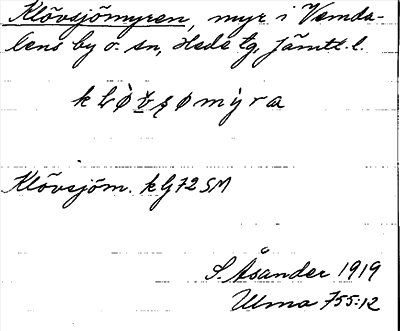 Klövsjömyren, myr i Vemda-
lens by o. sn, Hede tg, Jämtl. l.
Klövsjöm. kG72SM
S. Åsander 1919
Ulma 755:12